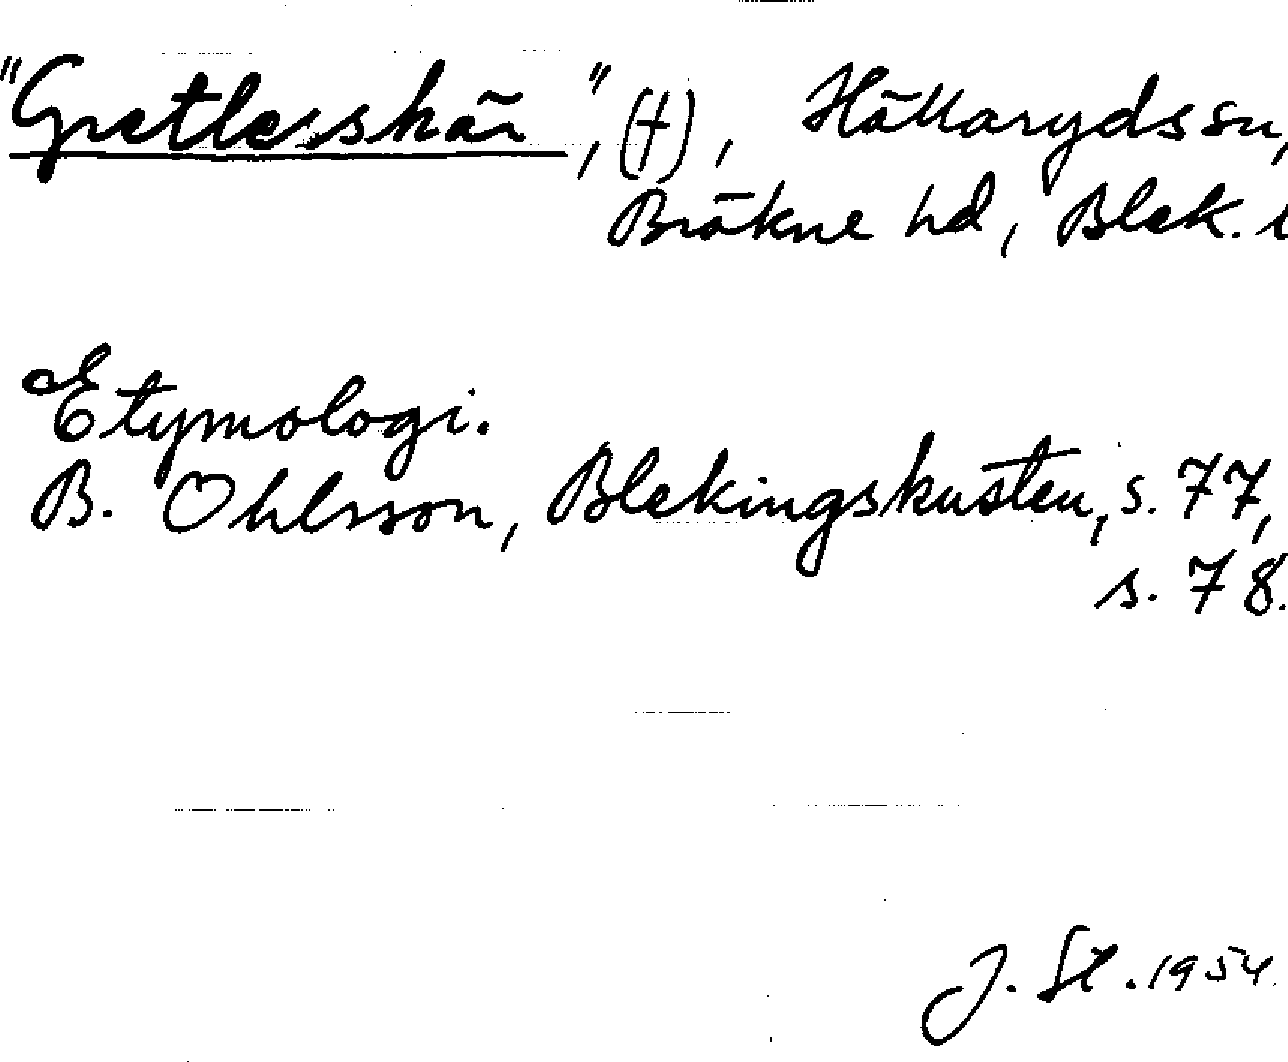 "Gretlesskär", (†), Hällaryds sn,
Bräkne hd, Blek. l
Etymologi.
B. Ohlsson, Blekingskusten, s. 77,
s. 78.
J. St. 1954.